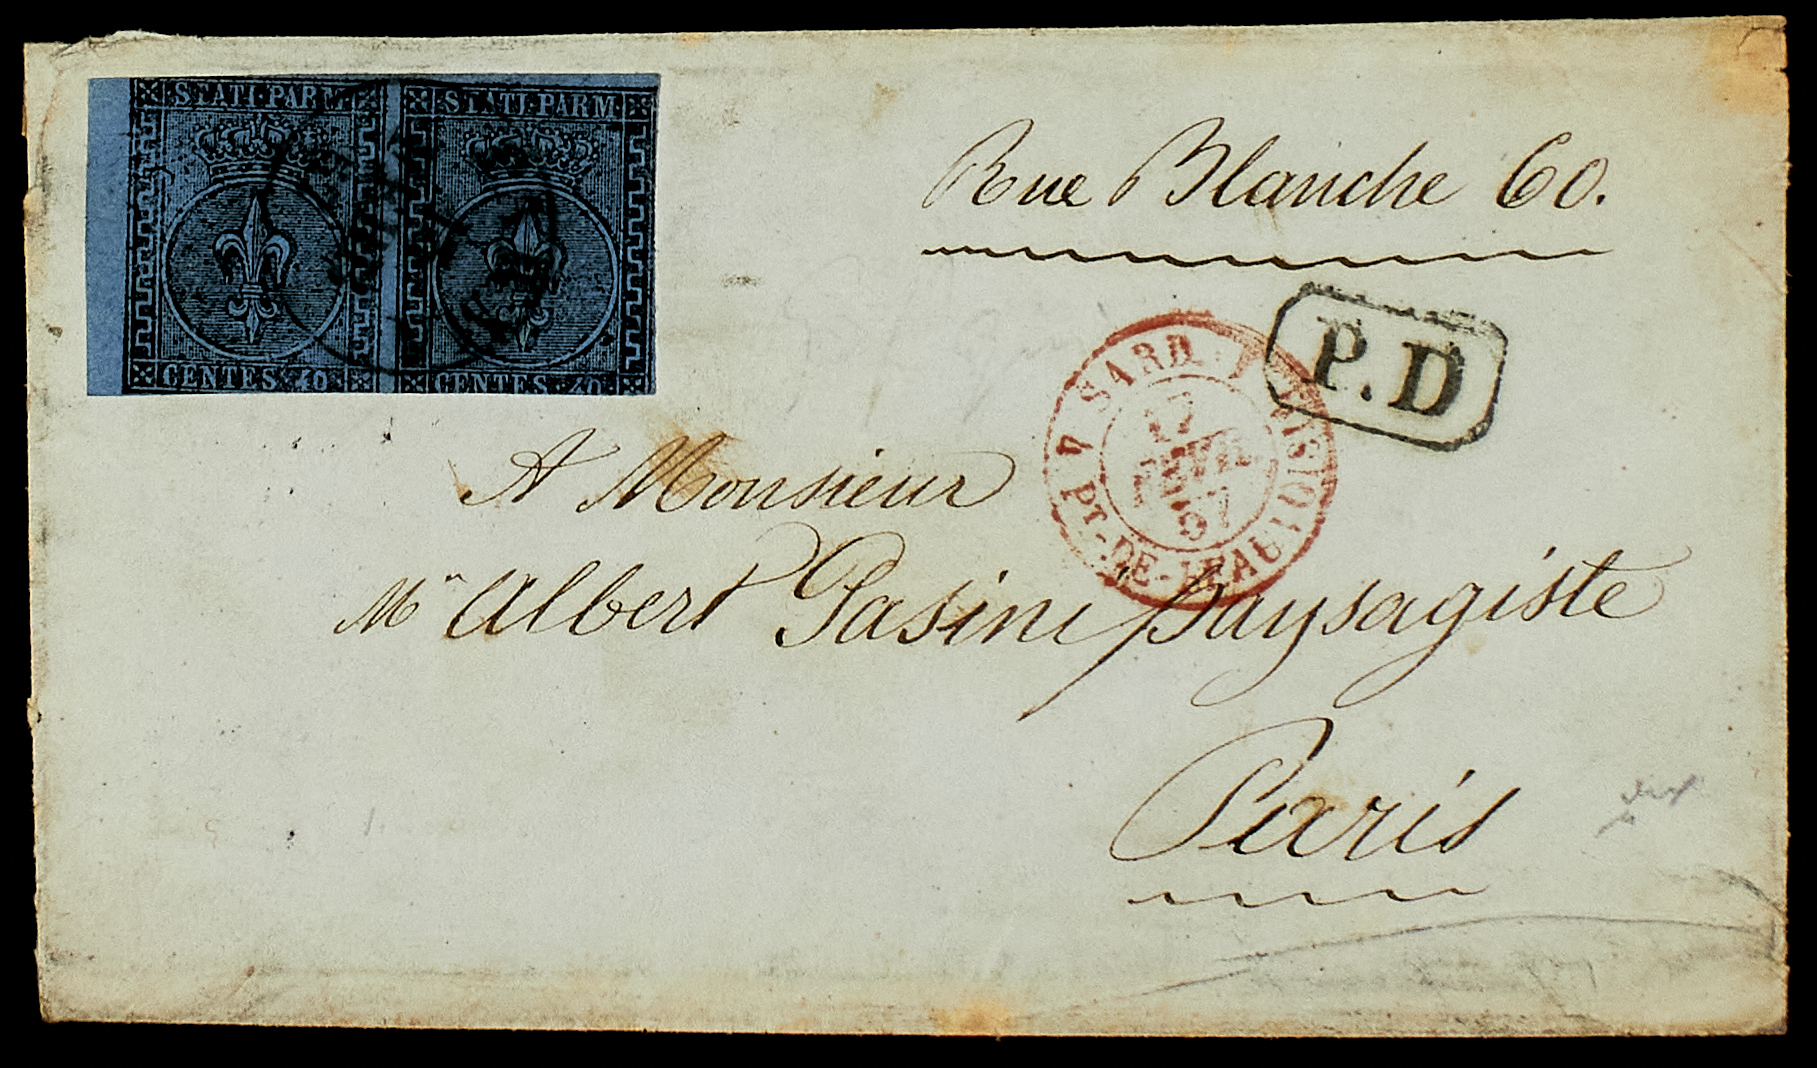 STATI PARM
CENTES. 40
STATI PARM
CENTES. 40
Rue Blanche 60.
P.D
SARD.
17
FEVR.
57
PT-DE-BEAUVOISIN
A Monsieur
Mr Albert Pasini paysagiste
Paris